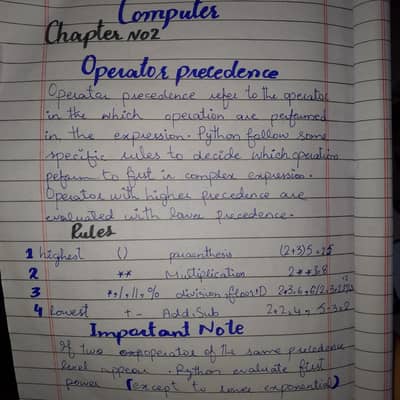 Computer
Chapter No2
Operator precedence
Operator precedence refer to the operator
in the which operation are performed
in the expression. Python follow some
specific rules to decide which operation
perform to first in complex expression.
Operator with higher precedence are
evaluated with lower precedence.
Rules
1 highest () paraenthesis (2+3)5=25
2 ** Multiplication 2**3=8
3 *,/,//,% division,floor,D
4 lowest + - Add, Sub 2+2=4, 5-3=2
Important Note
If two operator of the same precedence
level appear. Python evaluate first
power (except to lower exponential)